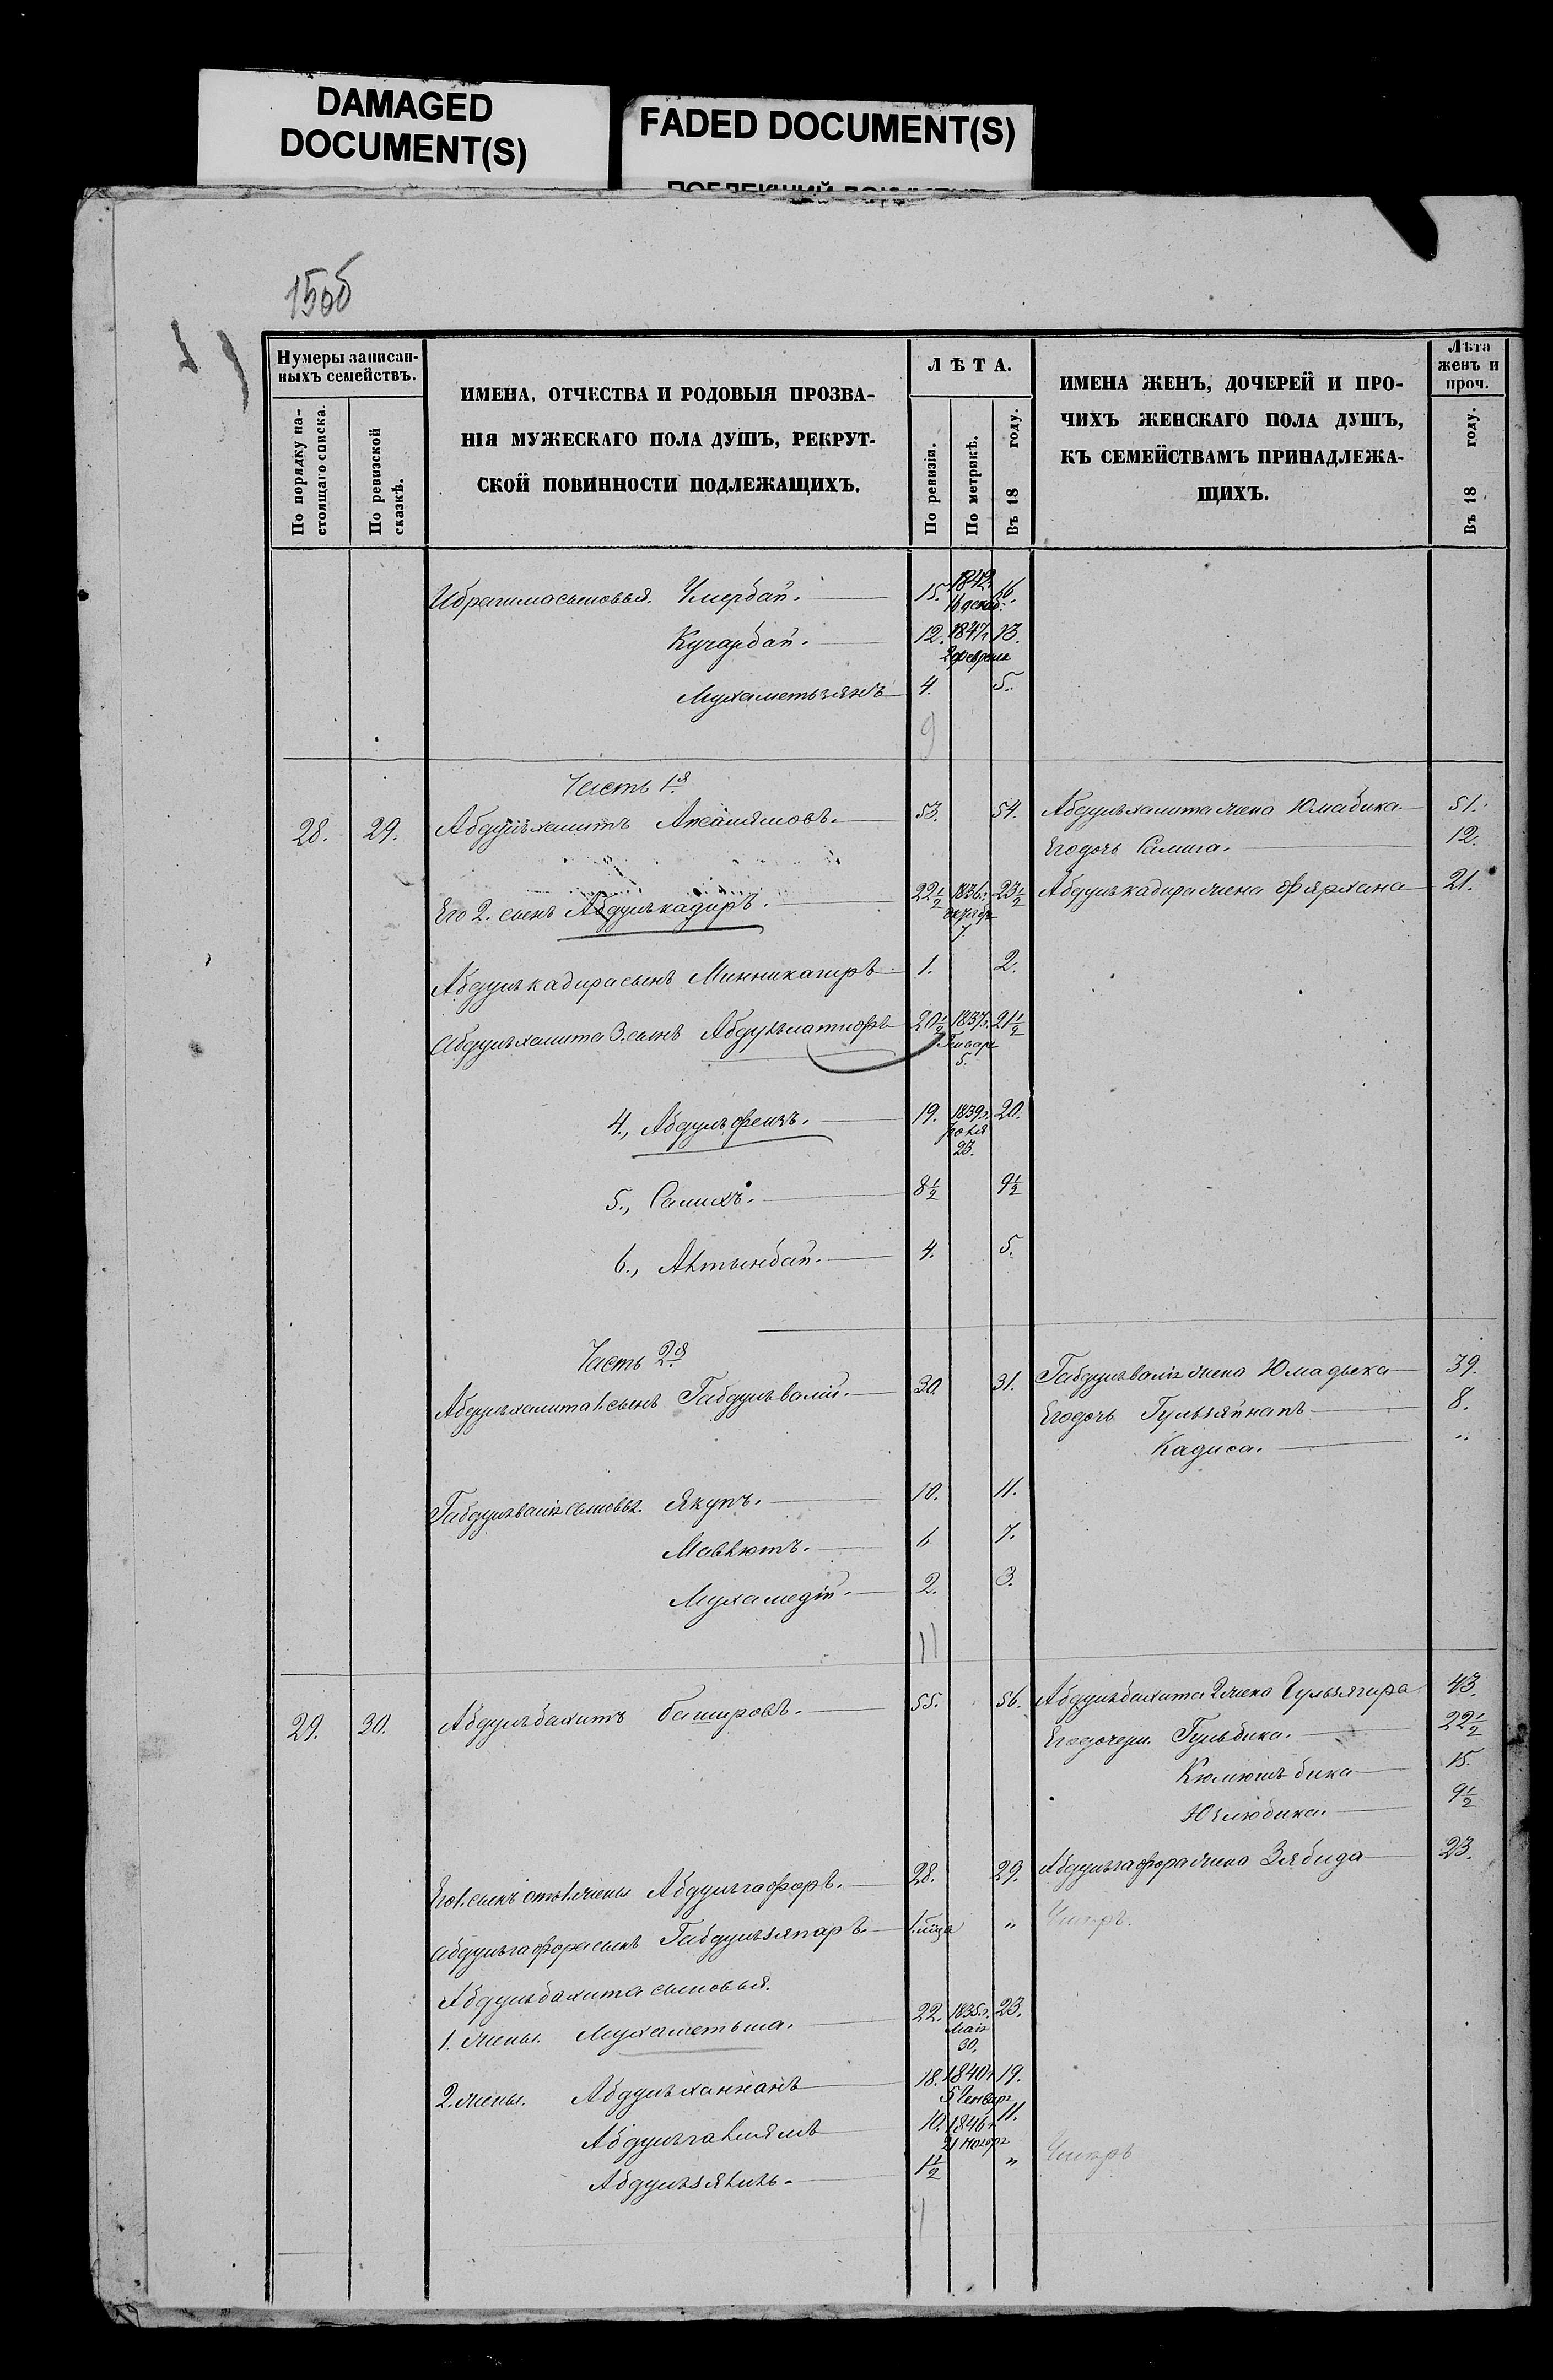 DAMAGED
DOCUMENT(S)
FADED DOCUMENT(S)
15об
Нумеры записан-
ныхъ семействъ.
По порядку на-
стоящаго списка.
По ревизской
сказкѣ.
ИМЕНА, ОТЧЕСТВА И РОДОВЫЯ ПРОЗВА-
НІЯ МУЖЕСКАГО ПОЛА ДУШЪ, РЕКРУТ-
СКОЙ ПОВИННОСТИ ПОДЛЕЖАЩИХЪ.
ЛѢТА.
По ревизіи.
По метрикѣ.
Въ 18 году.
ИМЕНА ЖЕНЪ, ДОЧЕРЕЙ И ПРО-
ЧИХЪ ЖЕНСКАГО ПОЛА ДУШЪ,
КЪ СЕМЕЙСТВАМЪ ПРИНАДЛЕЖА-
ЩИХЪ.
Лѣта
женъ и
проч.
Въ 18 году.
Ибрагима сыновья. Умербай. 15. 1842. 16.
Кучарбай. 12. 1847г. 13.
2 февраля
Мухаметьзянъ 4. 5.
9
Часть 1я
28. 29. Абдулъхалитъ 53. 54. Абдулъхалита жена Юмабика. 51.
Его дочь Салига. 12.
Его 2. сынъ Абдулъкадиръ. 22½ 1836. 23½ Абдулъкадира жена Фярхана 21.
7.
Абдулъкадира сынъ Минникагиръ 1. 2.
Абдулъхалита 3. сынъ Абдулълатифъ 20½ 1837г. 21½
Январь
5.
4., Абдулъфеизъ. 19. 1839г. 20.
23.
5., Салихъ. 8½ 9½
6., Актынбай. 4. 5.
Часть 2я
Абдулъхалита 1. сынъ Габдулъвалій. 30. 31. Габдулъвалія жена Юмадьека 39.
Его дочь Гульзяйнапъ 8.
Кадиса. "
Габдулъвалія сыновья. Якупъ. 10. 11.
Мавлютъ. 6 7.
Мухамедій. 2. 3.
11
29. 30. Абдулъбахитъ Башировъ. 55. 56. Абдулъбахита 2 жена Гульзягира 43.
Его дочери. Гульбика. 22½
Кюлюшъ бика 15.
Юзлюбика. 9½
Его 1. сынъ отъ 1. жены Абдулъгафоръ. 28. 29. Абдулъгафора жена Зябида 23.
Абдулъгафора сынъ Габдулъзяпаръ. " Умеръ.
Абдулъбахита сыновья.
1. жены. Мухаметьша. 22. 1835г. 23.
Мая
30.
2. жены. Абдулъханнанъ 18. 1840г 19.
5 Генваря
Абдулъгалимъ 10. 1846г 11.
21 ноября
Абдулъзялиль. 1½ " Умеръ